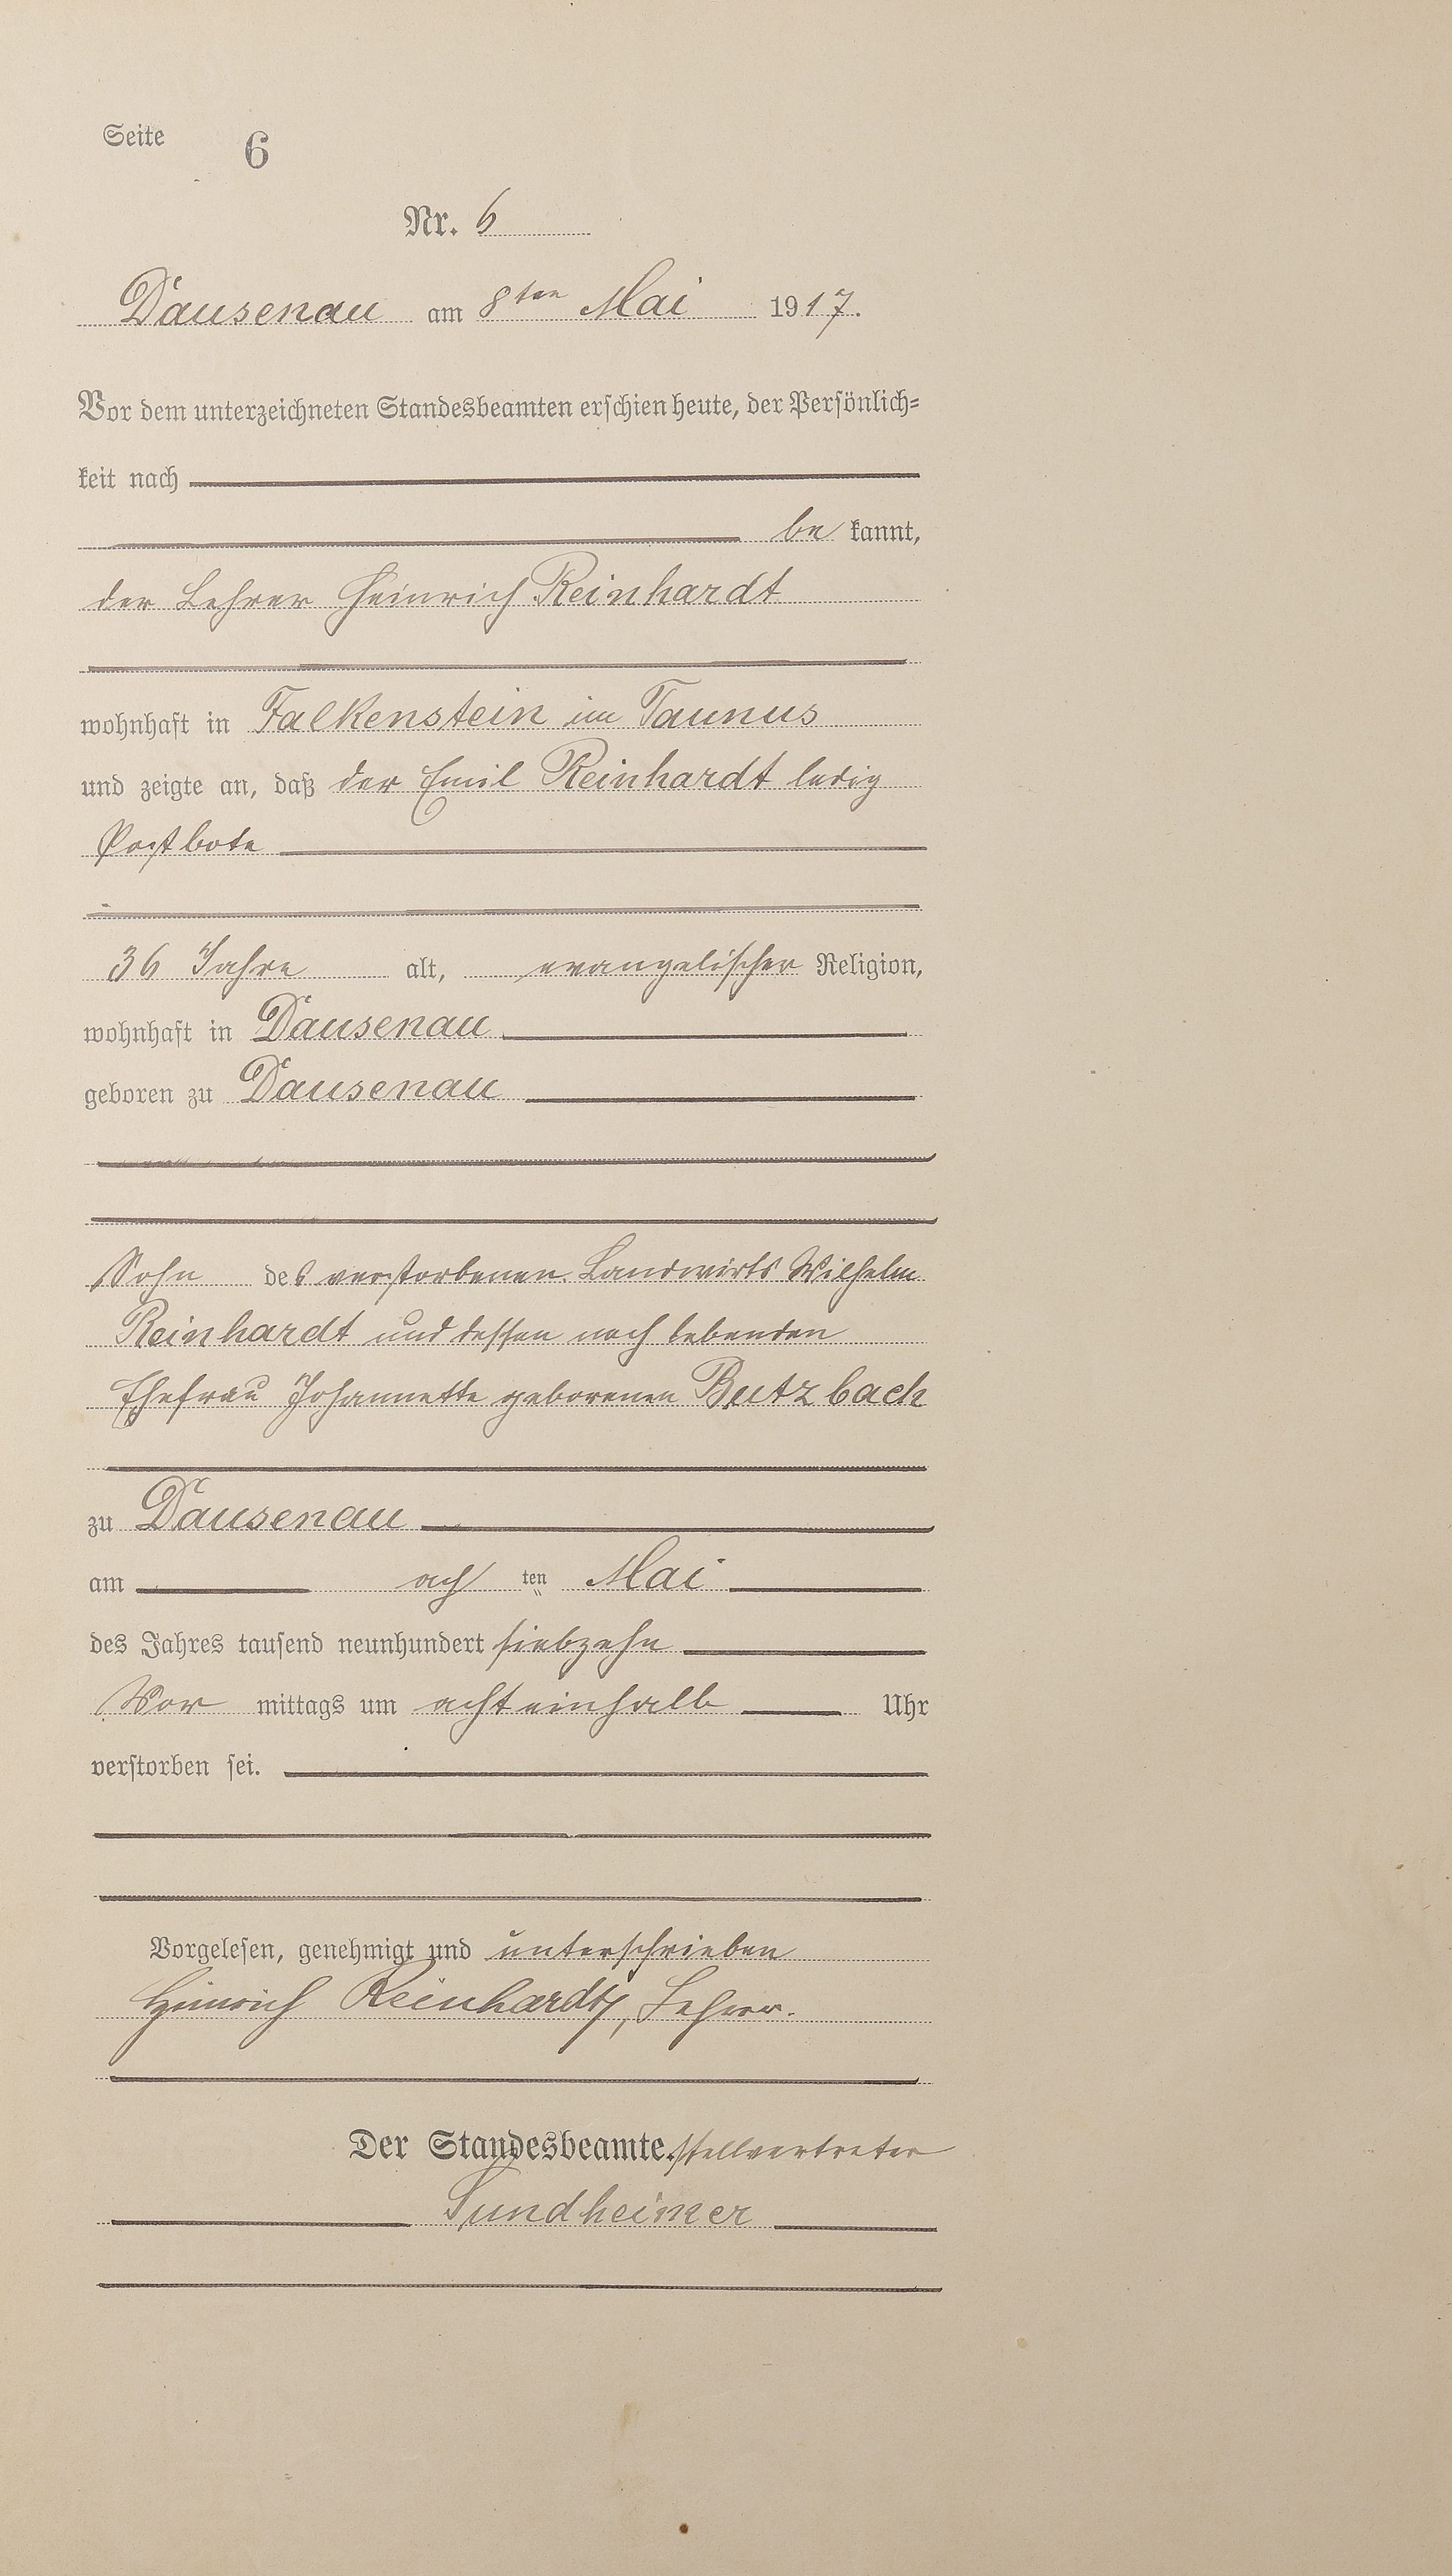 Seite 6
Nr. 6
Dausenau am 8ten Mai 1917.
Vor dem unterzeichneten Standesbeamten erschien heute, der Persönlich-
keit nach
be kannt,
der Lehrer Heinrich Reinhardt
wohnhaft in Falkenstein im Taunus
und zeigte an, daß der Emil Reinhardt ledig
Postbote
36 Jahre alt, evangelischer Religion,
wohnhaft in Dausenau
geboren zu Dausenau
Sohn des verstorbenen Landwirts Wilhelm
Reinhardt und dessen noch lebenden
Ehefrau Johannette geborenen Butzbach
zu Dausenau
am ach ten Mai
des Jahres tausend neunhundert siebzehn
Vor mittags um achteinhalb Uhr
verstorben sei.
Vorgelesen, genehmigt und unterschrieben
Heinrich Reinhardt, Lehrer.
Der Standesbeamte. stellvertreter
Sundheimer